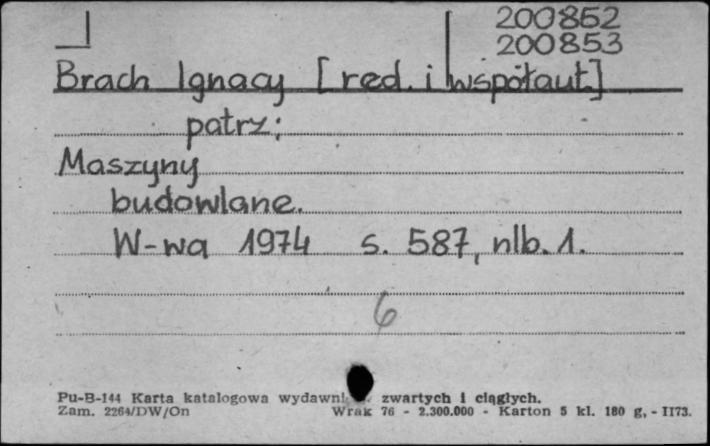 200852
200853
Brach Ignacy [red. i współaut.]
patrz:
Maszyny
budowlane.
W-wa 1974 s. 587, nlb. 1.
6
Pu-B-144 Karta katalogowa wydawni zwartych i ciągłych.
Zam. 2264/DW/On Wrak 76 - 2.300.000 - Karton 5 kl. 180 g, - II73.